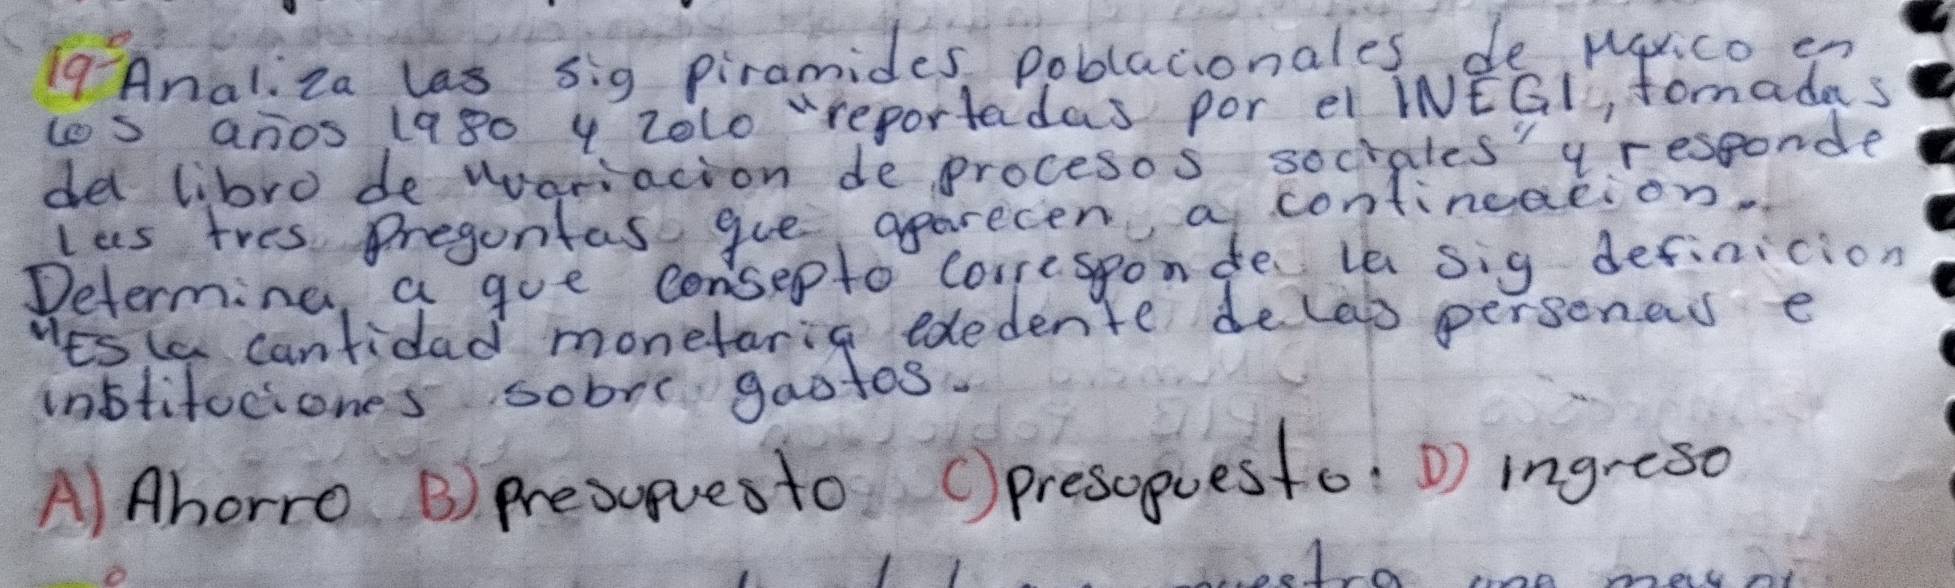 19º Analiza las sig piramides poblacionales de Mexico en
los años 1980 y 2010 "reportadas por el INEGI, tomadas
del libro de "variacion de procesos sociales" y responde
las tres preguntas que aparecen a contincacion.
Determina a que consepto corresponde la sig definicion
"Es la cantidad monetaria edente de las personas e
instituciones sobre gastos.
A) Ahorro B) presupuesto C) presupuesto. D) ingreso